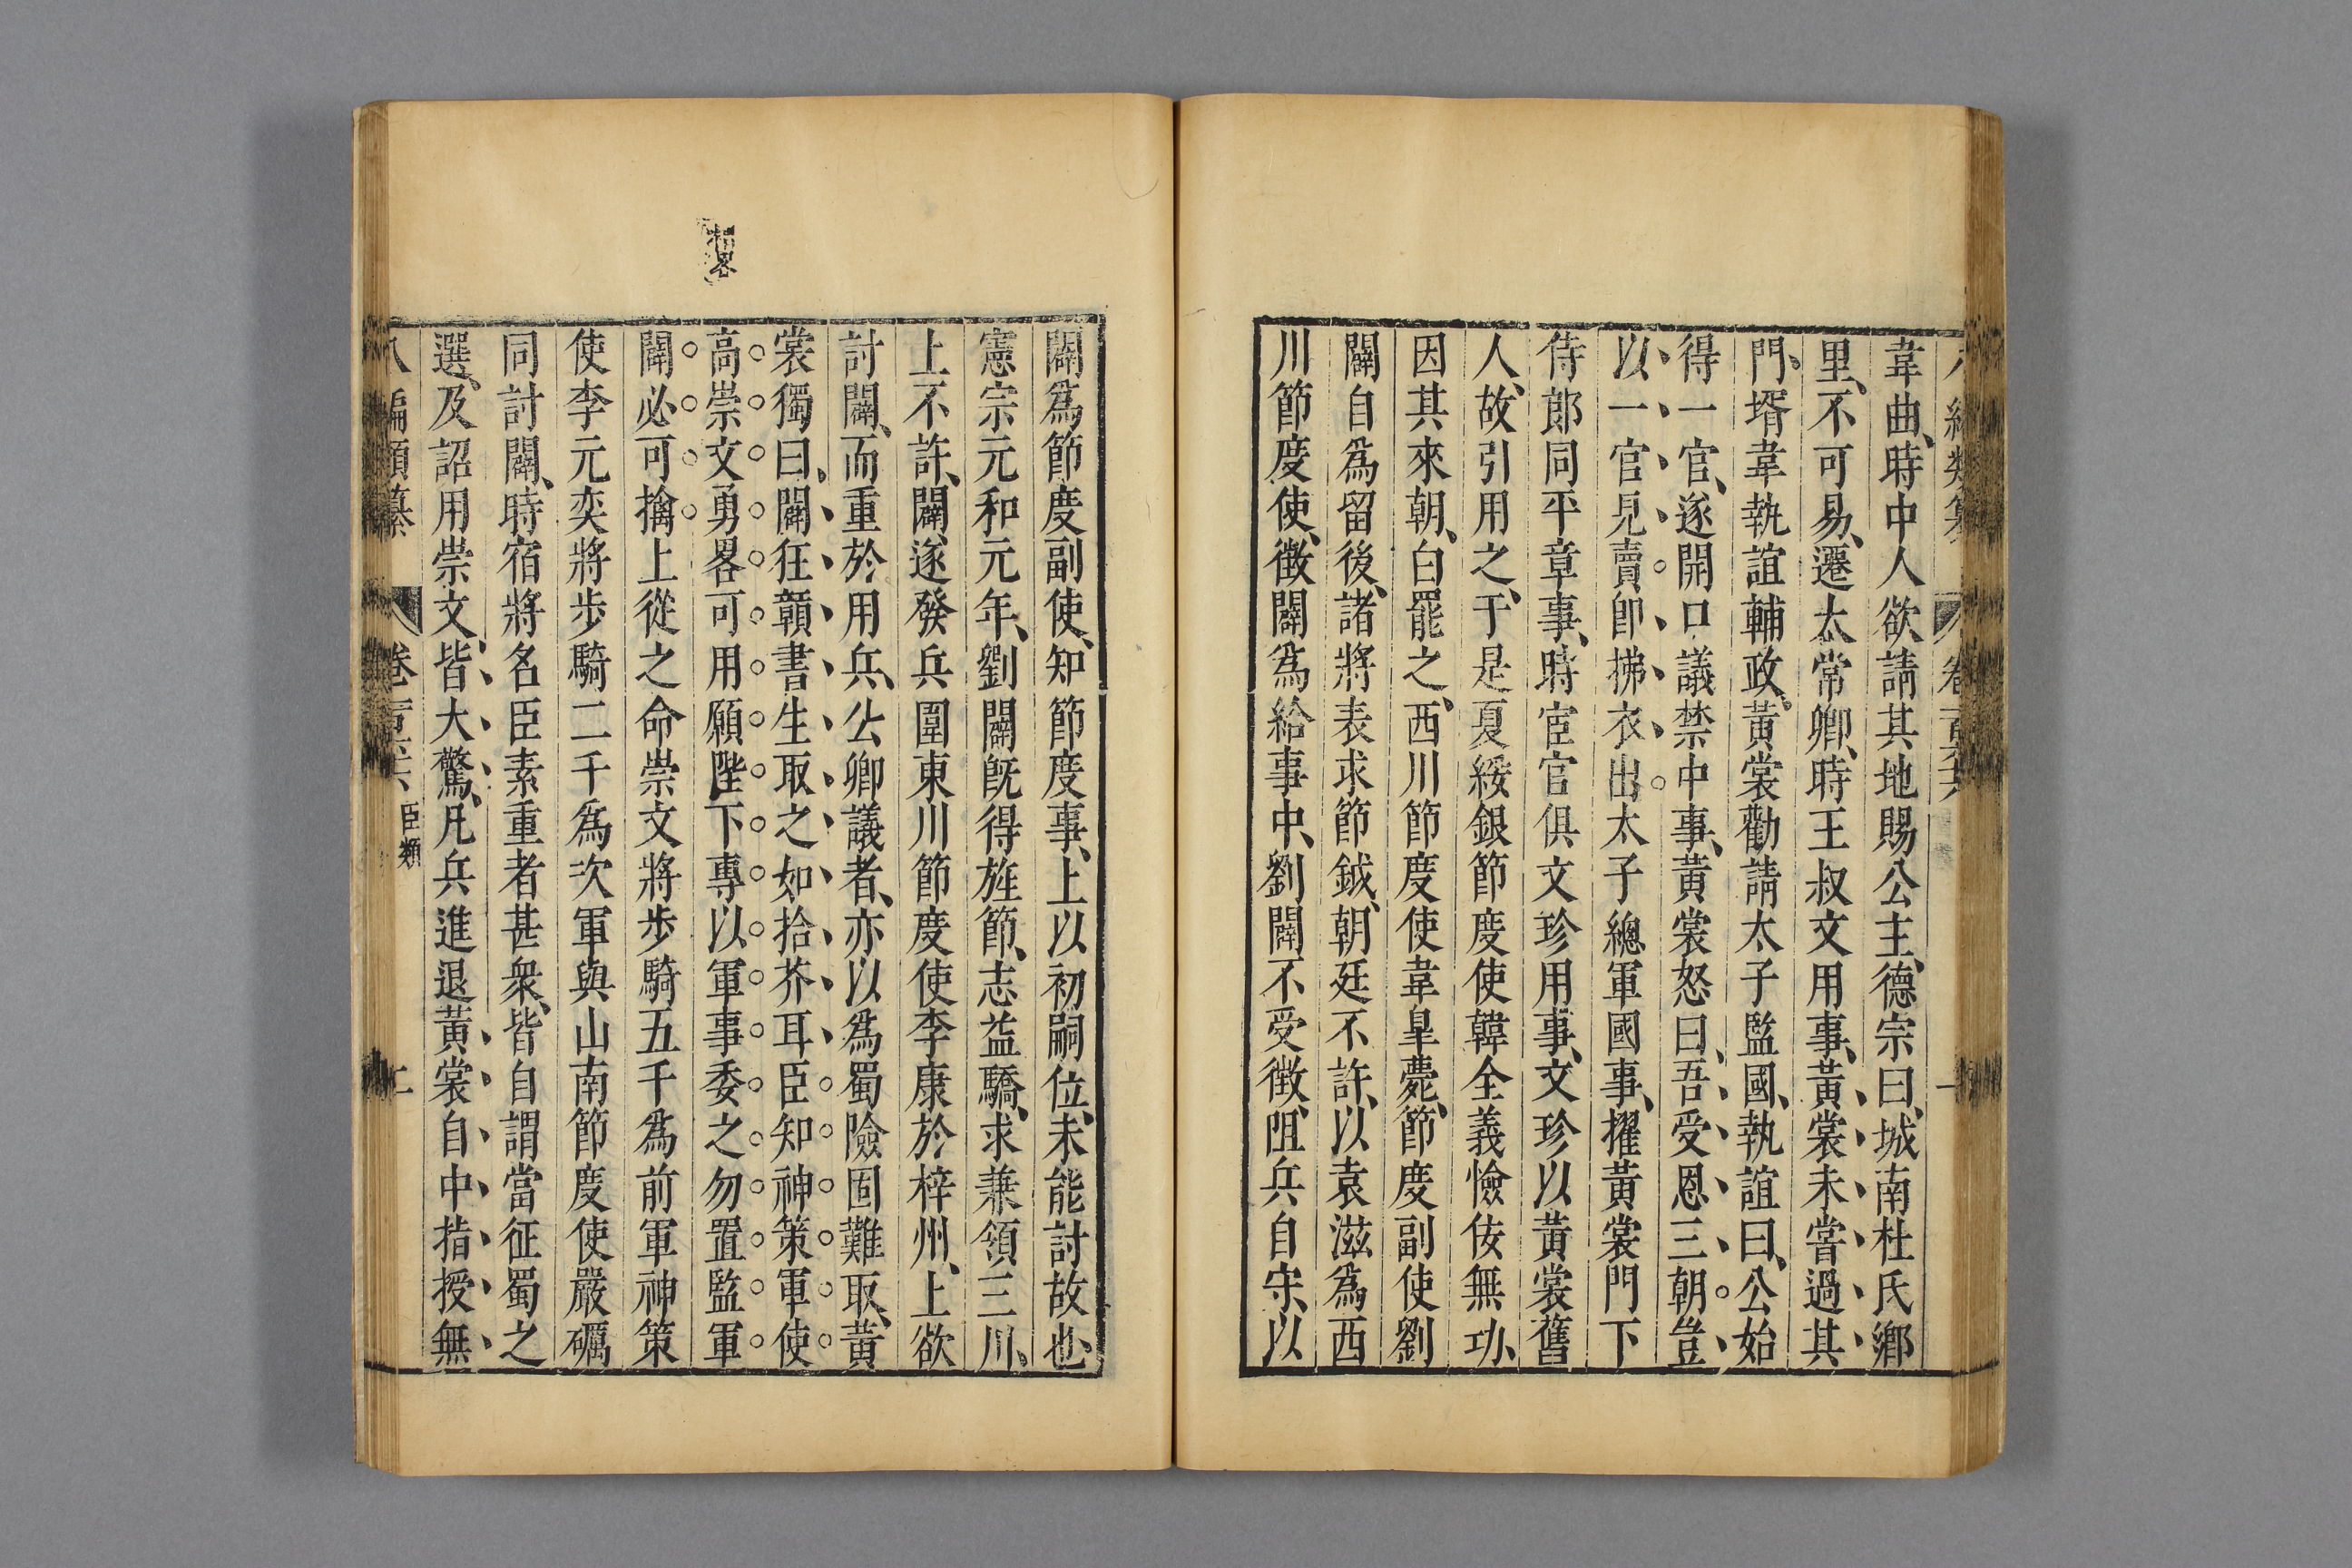 韋曲、時中人欲請其地賜公主、德宗曰、城南杜氏鄉
里、不可易、遷太常卿、時王叔文用事、黃裳未嘗過其
門、壻韋執誼輔政、黃裳勸請太子監國、執誼曰、公始
得一官、遂開口議禁中事、黃裳怒曰、吾受恩三朝豈
以一官見賣卽拂衣出太子總軍國事、擢黃裳門下
侍郎同平章事、時宦官俱文珍用事、文珍以黃裳舊
人、故引用之、于是夏綏銀節度使韓全義憸佞無功、
因其來朝、白罷之、西川節度使韋皐薨、節度副使劉
闢自爲留後、諸將表求節鉞、朝廷不許、以袁滋爲西
川節度使、徵闢爲給事中、劉闢不受徵、阻兵自守、以
闢爲節度副使、知節度事、上以初嗣位、未能討故也、
憲宗元和元年、劉闢旣得旌節、志益驕、求兼領三川、
上不許、闢遂發兵圍東川節度使李康於梓州、上欲
討闢、而重於用兵、公卿議者、亦以爲蜀險固難取、黃
裳獨曰、闢狂戇書生取之如拾芥耳臣知神策軍使
高崇文勇畧可用願陛下專以軍事委之勿置監軍
闢必可擒上從之命崇文將步騎五千爲前軍神策
使李元奕將步騎二千爲次軍與山南節度使嚴礪
同討闢、時宿將名臣素重者甚衆、皆自謂當征蜀之
選、及詔用崇文、皆大驚、凡兵進退黃裳自中指授無
八編類纂 卷一百三六 臣類 二